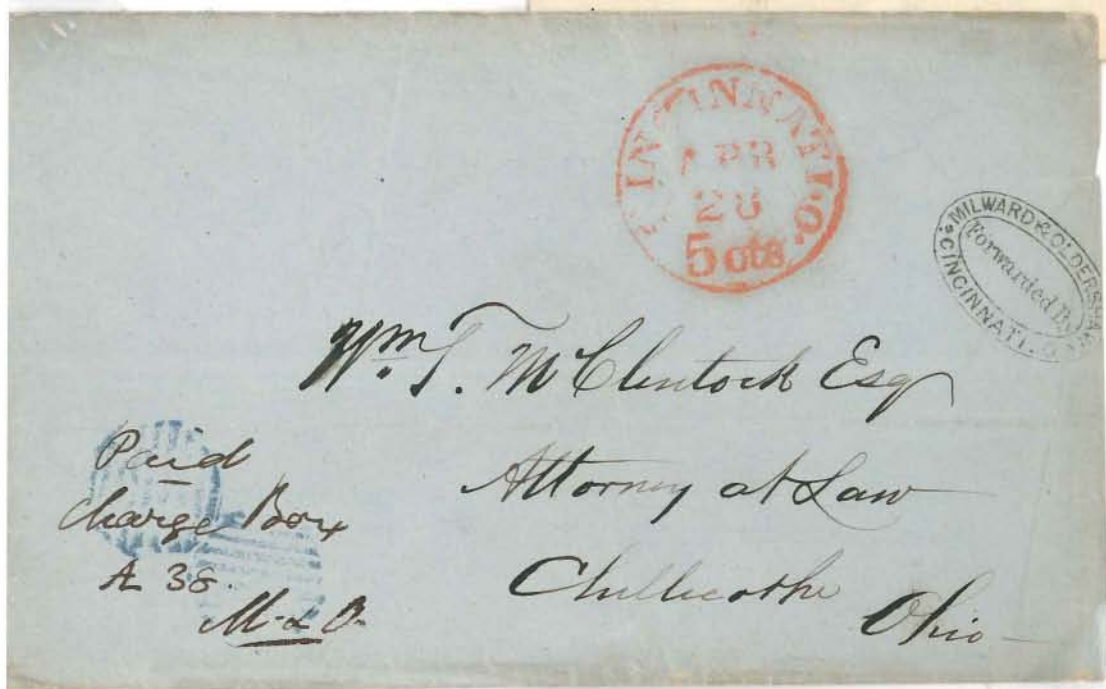 CINCINNATI.O.
APR
28
5 cts
MILWARD & OLDERSHAW
Forwarded By
CINCINNATI. O.
Wm. T. McClintock Esq
Attorney at Law
Chillicothe
Ohio
Paid
Charge Box
A 38.
M & O.